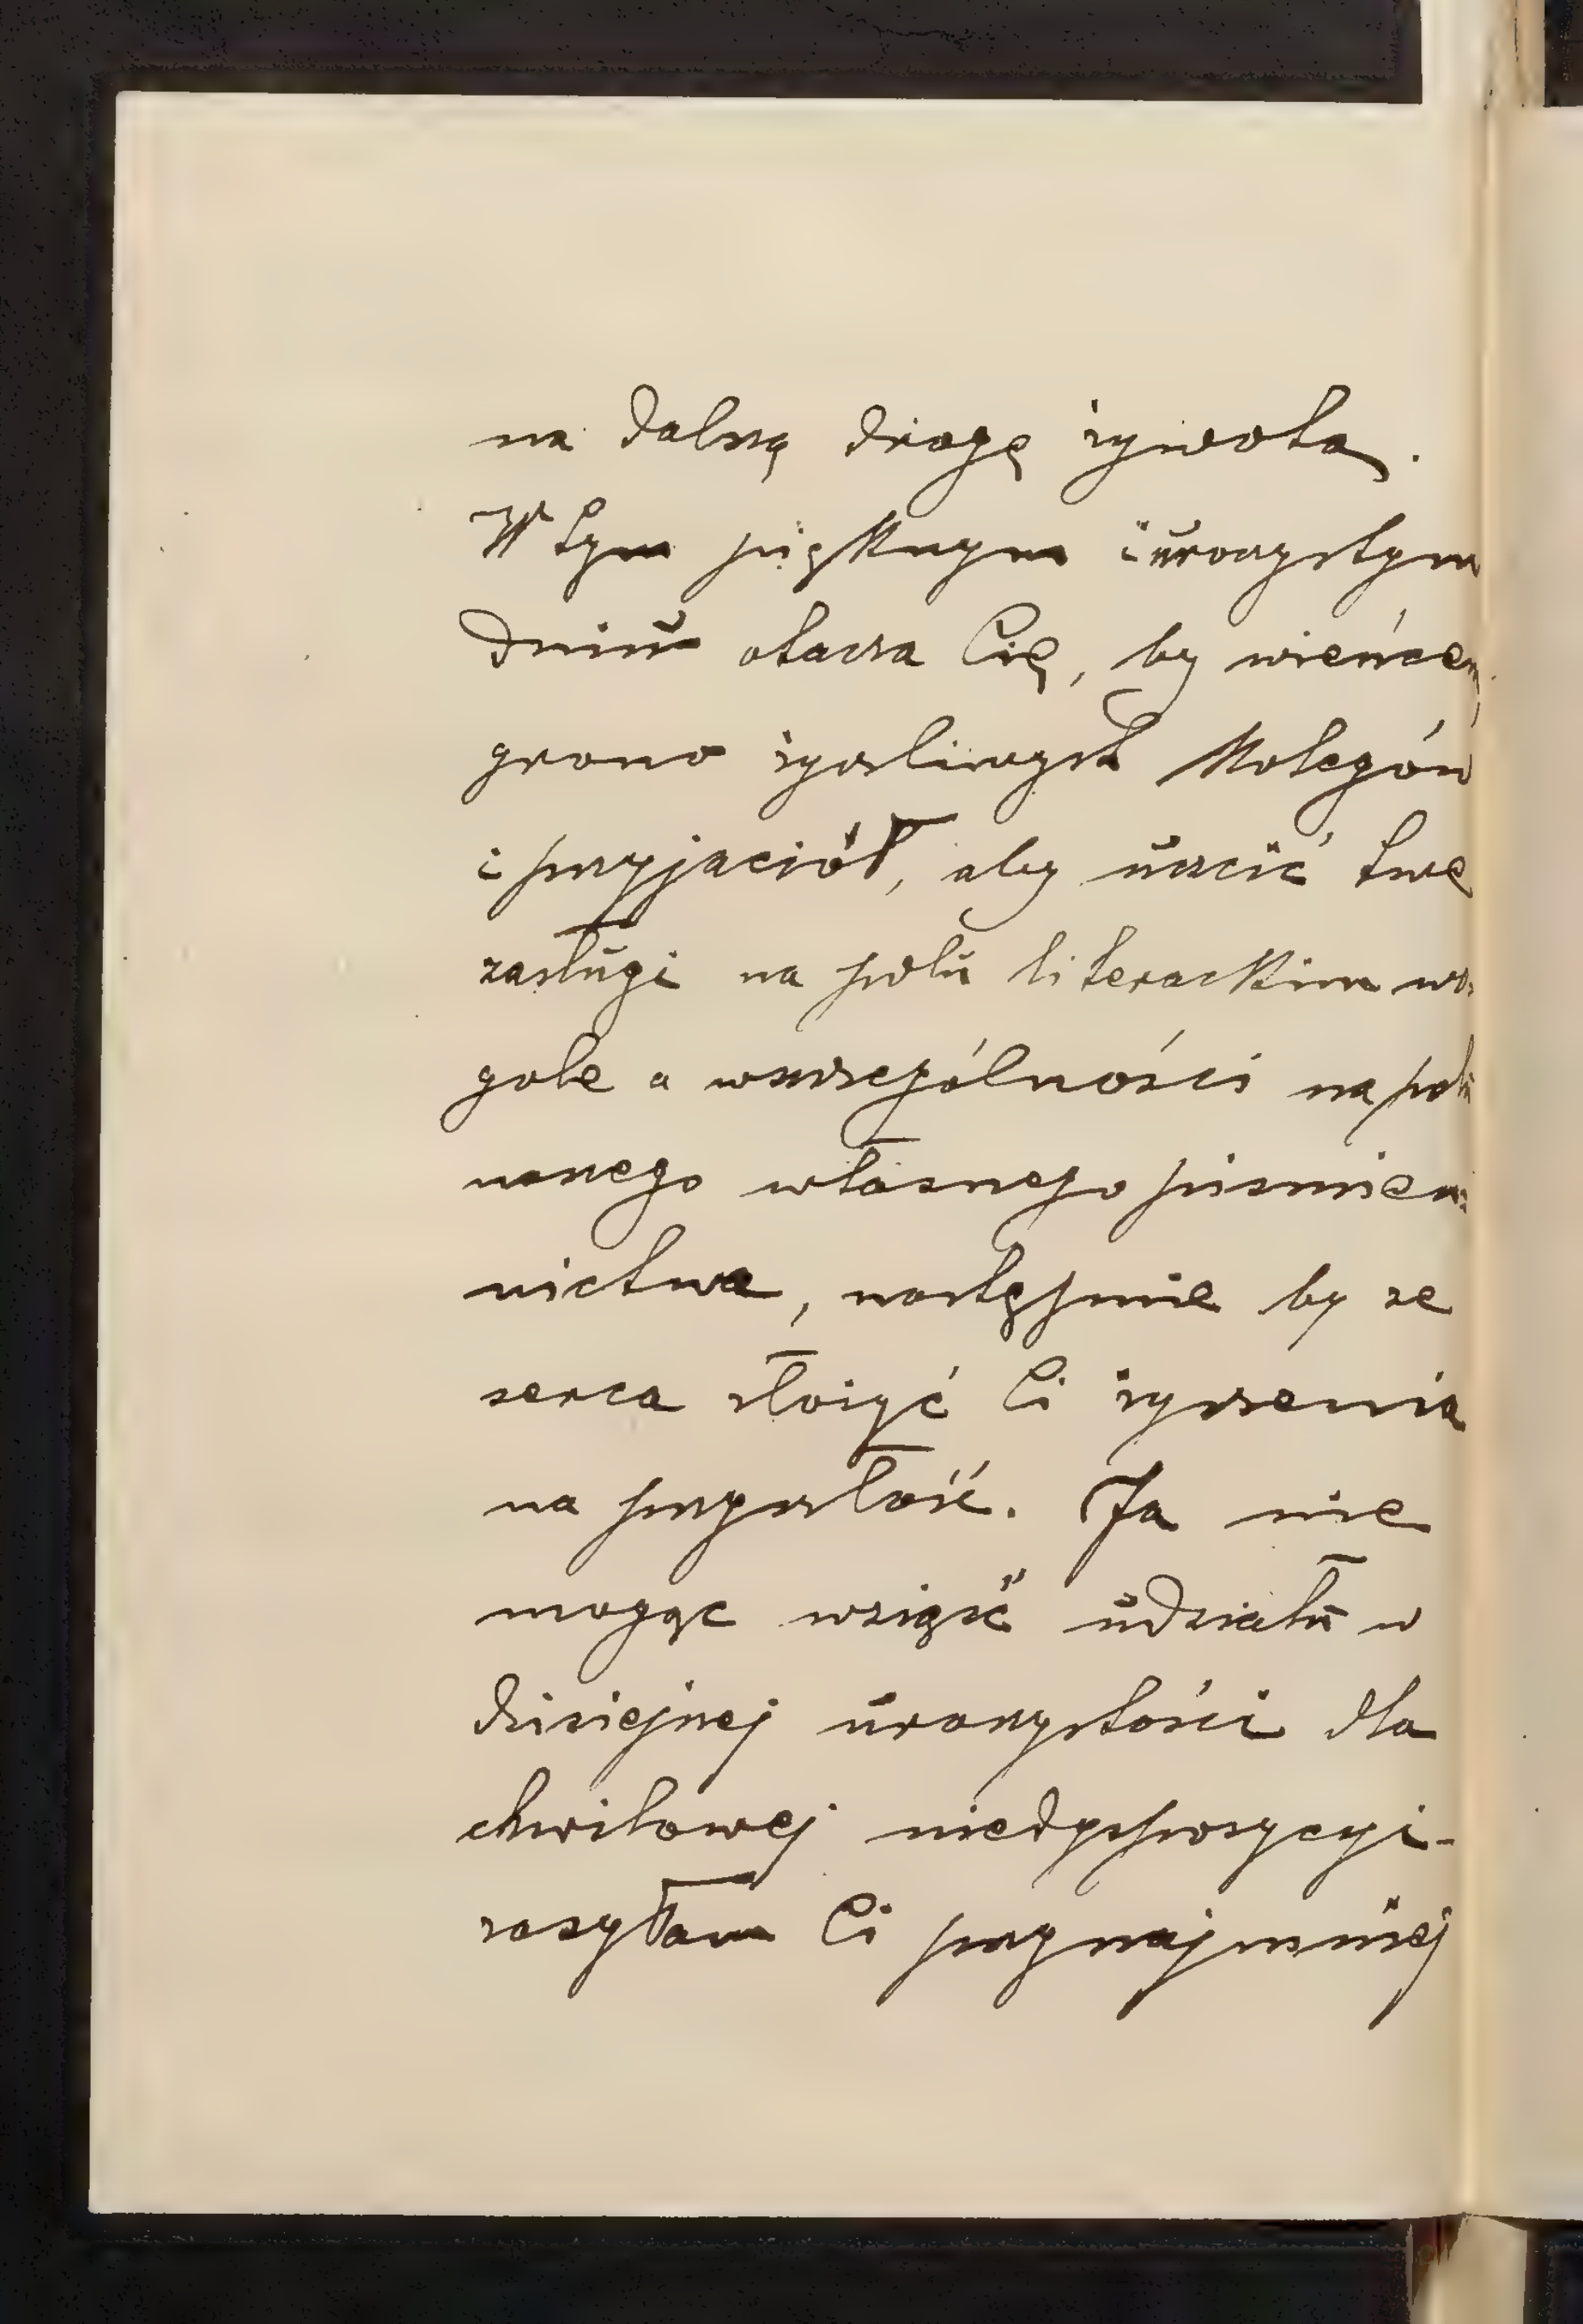 na dalszą drogę żywota.
W tym pięknym i uroczystym
dniu otacza Cię, by wieńcem
grono życzliwych kolegów
i przyjaciół, aby uczcić twe
zasługi na polu literackim wo-
góle a w szczególności na polu
naszego własnego piśmien-
nictwa, następnie by ze
serca złożyć Ci życzenia
na przyszłość. Ja nie
mogąc wziąść udziału w
dzisiejszej uroczystości dla
chwilowej niedyspozycyi -
zasyłam Ci przynajmniej